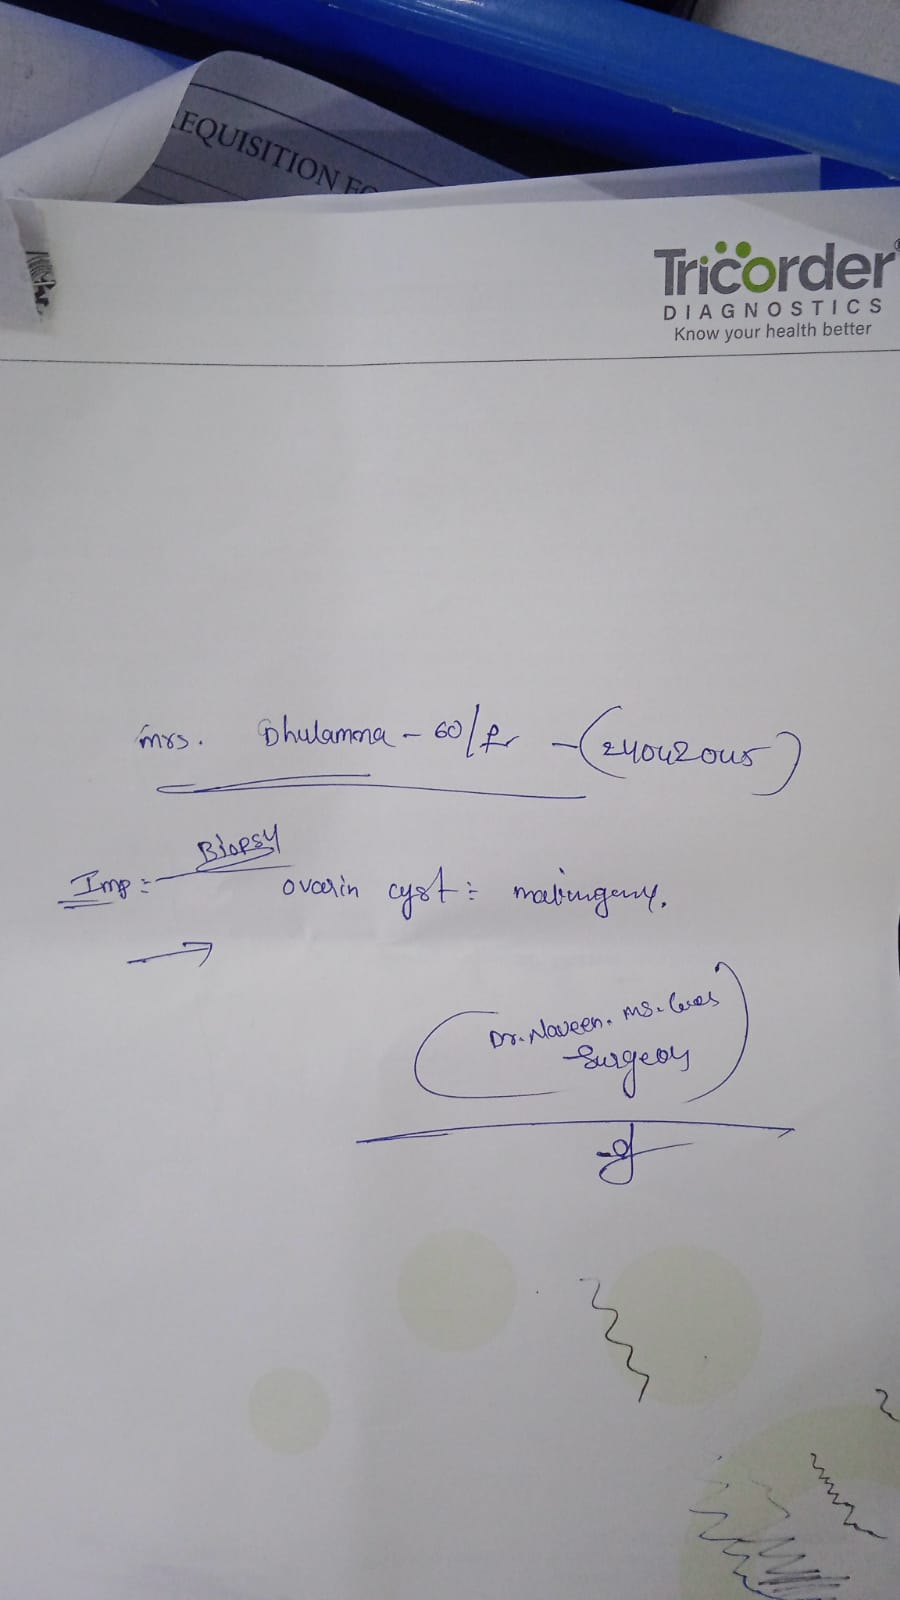 REQUISITION FO
Tricorder
DIAGNOSTICS
Know your health better
mrs. Dhulamma - 60/
Biopsy
Imp:- ovarin cyst :
Dr. Naveen. MS.
Surgeon